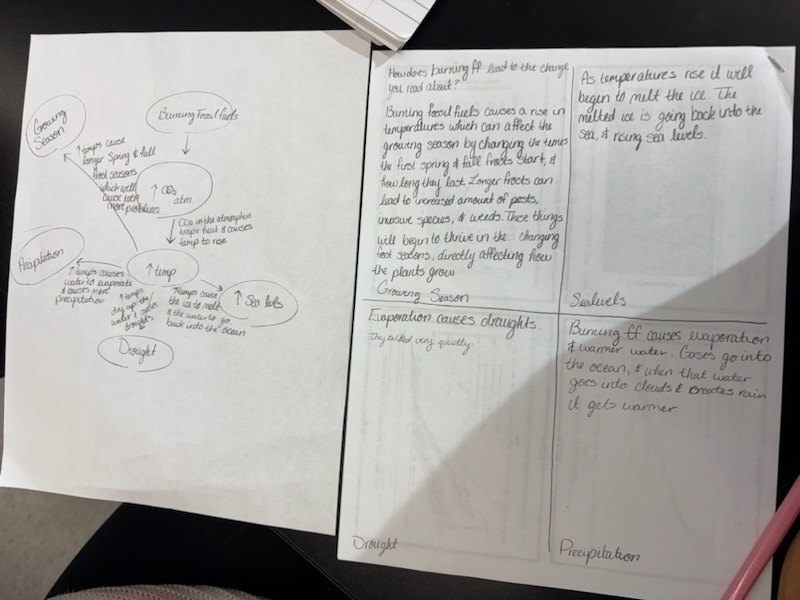 Growing
Season
Burning Fossil fuels
↑ temps cause
longer Spring & fall
frost seasons
which will
cause
more problems
↑ CO₂
atm.
CO₂ in the atmosphere
traps heat & causes
temp to rise
Precipitation
↑ temp
↑ Sea levels
↑ temps causes
water to evaporate
& causes more
precipitation
↑ temps
dry up the
water &
droughts
↑ temps cause
the ice to melt
& the water to go
back into the ocean
Drought
How does burning ff lead to the change
you read about?
Burning fossil fuels causes a rise in
temperatures which can affect the
growing season by changing the times
the first spring & fall frosts start, &
how long they last. Longer frosts can
lead to increased amount of pests,
invasive species, & weeds. These things
will begin to thrive in the changing
frost seasons, directly affecting how
the plants grow
Growing Season
As temperatures rise it will
begin to melt the ice. The
melted ice is going back into the
sea, & rising sea levels.
Sealevels
Evaporation causes draughts.
They talked very quietly.
Drought
Burning ff causes evaporation
& warmer water. Gases go into
the ocean, & when that water
goes into clouds & creates rain
it gets warmer.
Precipitation